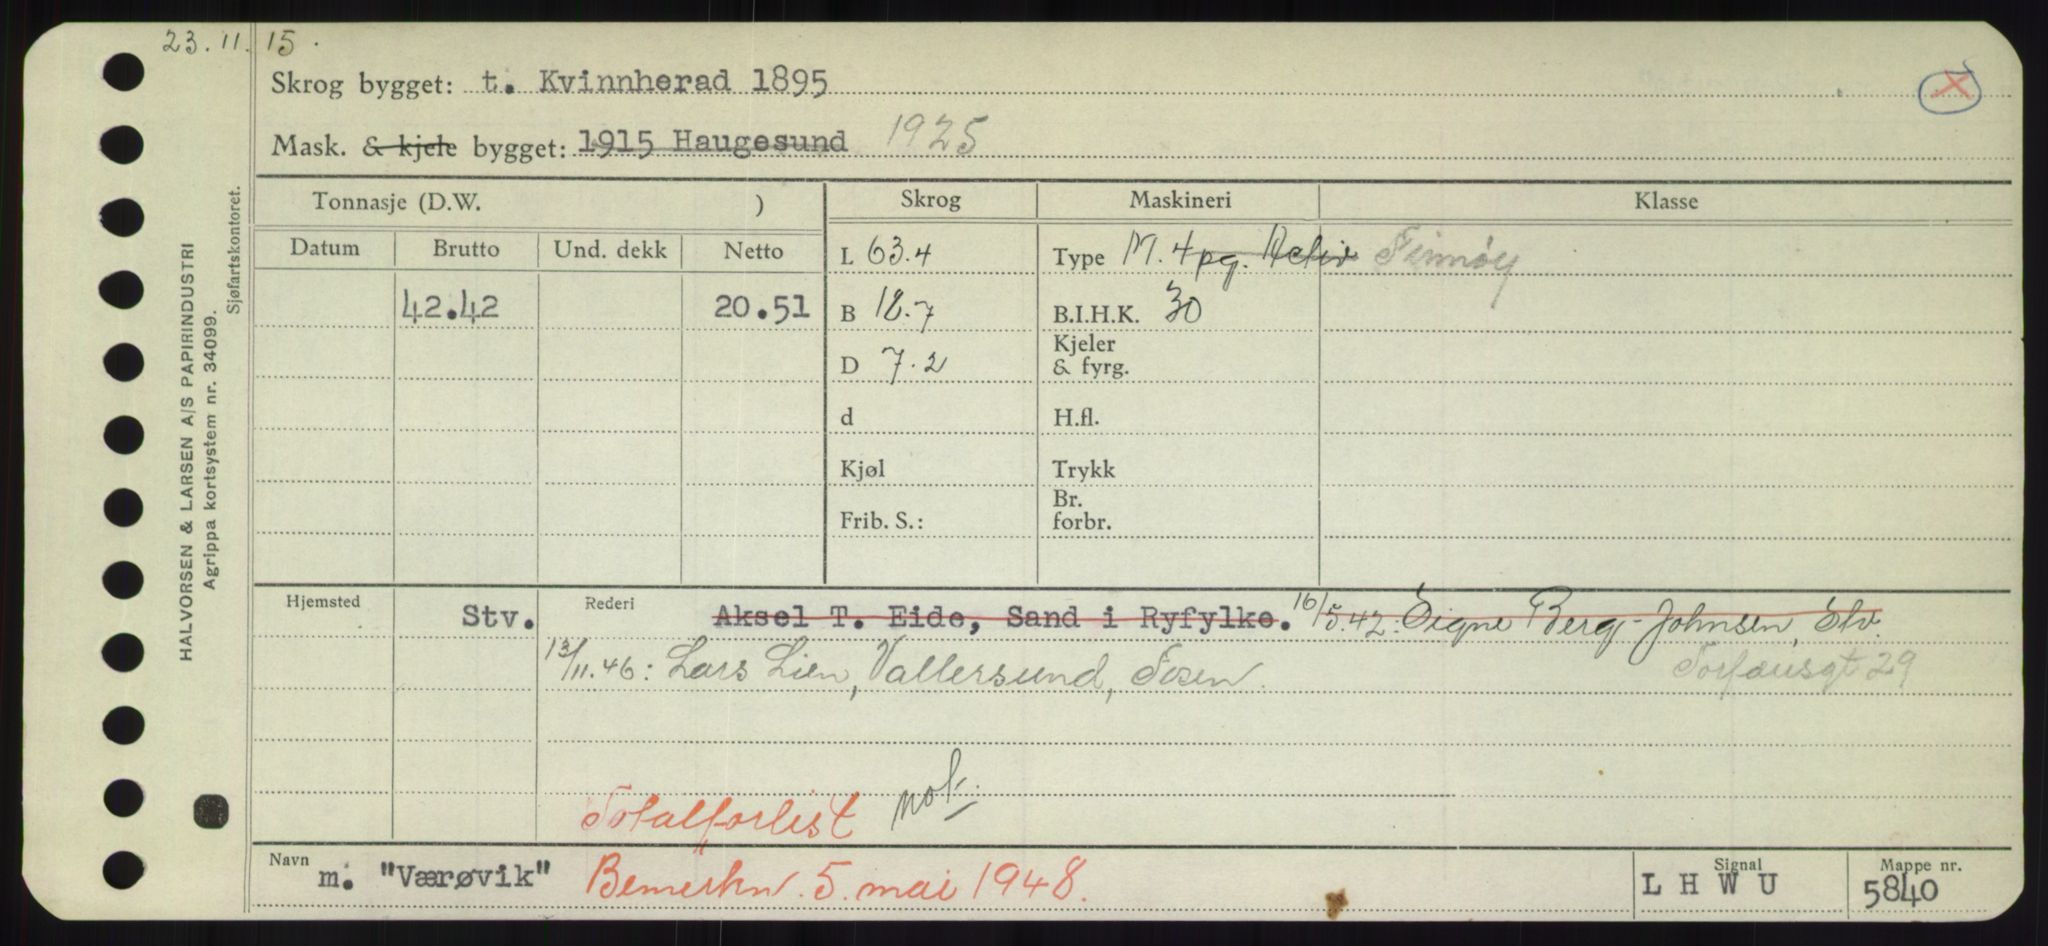 23.11.15.
Skrog bygget: t. Kvinnherad 1895
Mask. & kjele bygget: 1915 Haugesund 1925
Tonnasje (D.W. ) Skrog Maskineri Klasse
Datum Brutto Und. dekk Netto
L 63.4 Type M. 4 pg. Finnøy
42.42 20.51 B 18.7 B.I.H.K. 30
D 7.2 Kjeler & fyrg.
d H.fl.
Kjøl Trykk
Frib. S.: Br. forbr.
Hjemsted Stv. Rederi Aksel T. Eide, Sand i Ryfylke. 16/5.42: Signe Berg-Johnsen, Slv.
13/11.46: Lars Lien, Vallersund, Fosen. 29
Totalforlist
Navn m. "Værøvik" Bemerkn. 5. mai 1948. Signal L H W U Mappe nr. 5840
HALVORSEN & LARSEN A/S PAPIRINDUSTRI
Agrippa kortsystem nr. 34099.
Sjøfartskontoret.